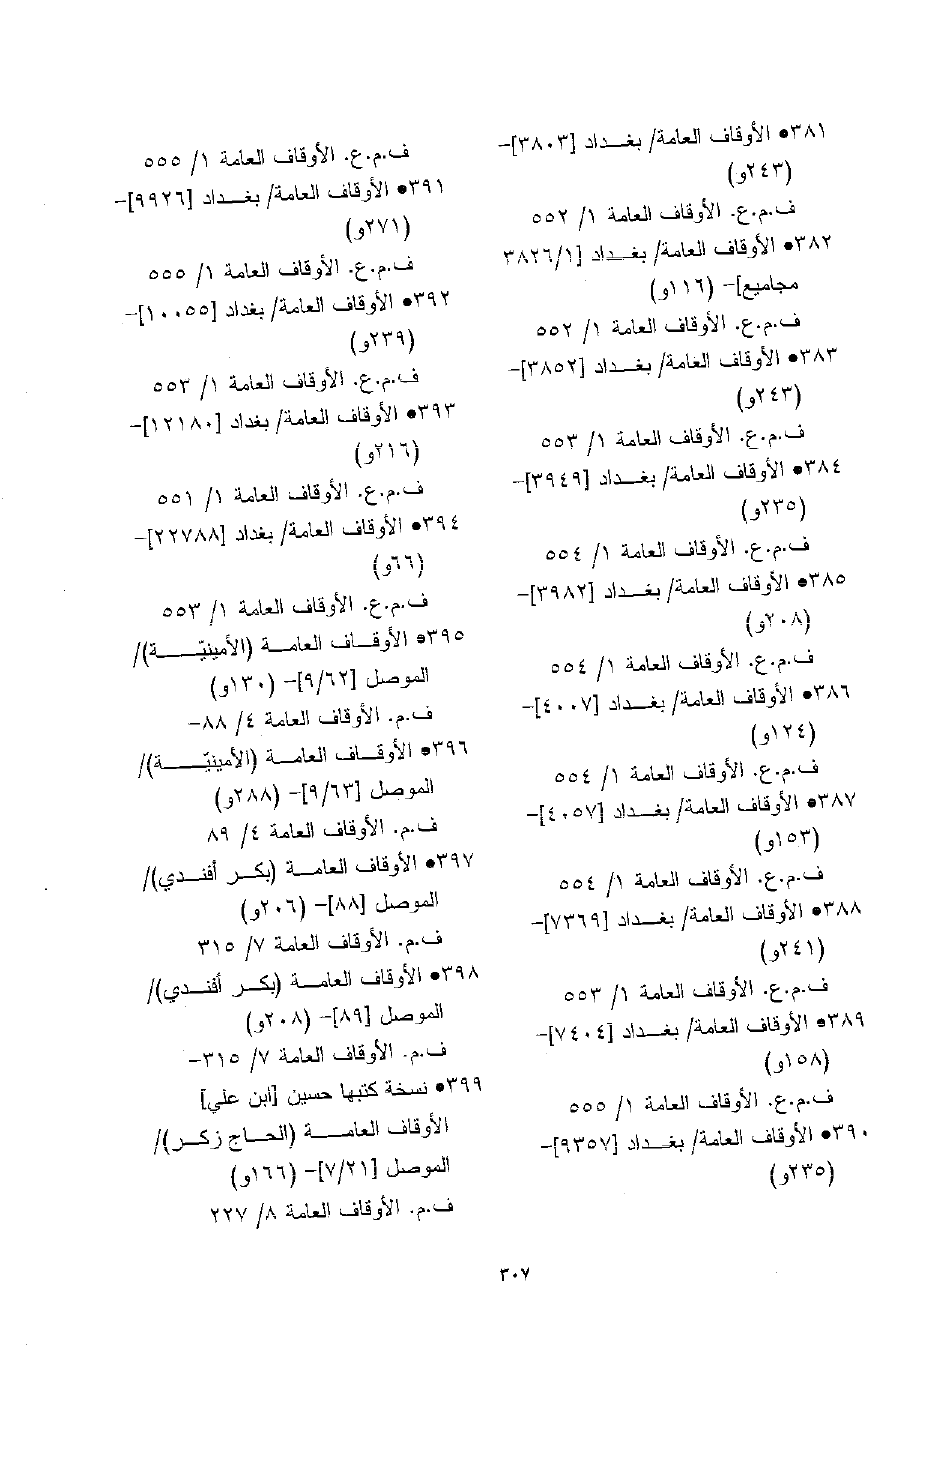 ٣٨١• الأوقاف العامة/ بغـــداد [٣٨٠٣]-
(٢٤٣و)
ف.م.ع. الأوقاف العامة ١/ ٥٥٢
٣٨٢• الأوقاف العامة/ بغـــداد [٣٨٢٦/١
مجاميع]- (١١٦و)
ف.م.ع. الأوقاف العامة ١/ ٥٥٢
٣٨٣• الأوقاف العامة/ بغـــداد [٣٨٥٢]-
(٢٤٣و)
ف.م.ع. الأوقاف العامة ١/ ٥٥٣
٣٨٤• الأوقاف العامة/ بغـــداد [٣٩٤٩]-
(٢٣٥و)
ف.م.ع. الأوقاف العامة ١/ ٥٥٤
٣٨٥• الأوقاف العامة/ بغـــداد [٣٩٨٢]-
(٢٠٨و)
ف.م.ع. الأوقاف العامة ١/ ٥٥٤
٣٨٦• الأوقاف العامة/ بغـــداد [٤٠٠٧]-
(١٢٤و)
ف.م.ع. الأوقاف العامة ١/ ٥٥٤
٣٨٧• الأوقاف العامة/ بغـــداد [٤٠٥٧]-
(١٥٣و)
ف.م.ع. الأوقاف العامة ١/ ٥٥٤
٣٨٨• الأوقاف العامة/ بغـــداد [٧٣٦٩]-
(٢٤١و)
ف.م.ع. الأوقاف العامة ١/ ٥٥٣
٣٨٩• الأوقاف العامة/ بغـــداد [٧٤٠٤]-
(١٥٨و)
ف.م.ع. الأوقاف العامة ١/ ٥٥٥
٣٩٠• الأوقاف العامة/ بغـــداد [٩٣٥٧]-
(٢٣٥و)
ف.م.ع. الأوقاف العامة ١/ ٥٥٥
٣٩١• الأوقاف العامة/ بغـــداد [٩٩٢٦]-
(٢٧١و)
ف.م.ع. الأوقاف العامة ١/ ٥٥٥
٣٩٢• الأوقاف العامة/ بغداد [١٠٠٥٥]-
(٢٣٩و)
ف.م.ع. الأوقاف العامة ١/ ٥٥٣
٣٩٣• الأوقاف العامة/ بغداد [١٢١٨٠]-
(٢١٦و)
ف.م.ع. الأوقاف العامة ١/ ٥٥١
٣٩٤• الأوقاف العامة/ بغداد [٢٢٧٨٨]-
(٦٦و)
ف.م.ع. الأوقاف العامة ١/ ٥٥٣
٣٩٥• الأوقـــاف العامـــة (الأمينيّـــــة)/
الموصل [٩/٦٢]- (١٣٠و)
ف.م. الأوقاف العامة ٤/ ٨٨-
٣٩٦• الأوقـــاف العامـــة (الأمينيّـــــة)/
الموصل [٩/٦٣]- (٢٨٨و)
ف.م. الأوقاف العامة ٤/ ٨٩
٣٩٧• الأوقاف العامـــة (بكـــر أفنـــدي)/
الموصل [٨٨]- (٢٠٦و)
ف.م. الأوقاف العامة ٧/ ٣١٥
٣٩٨• الأوقاف العامـــة (بكـــر أفنـــدي)/
الموصل [٨٩]- (٢٠٨و)
ف.م. الأوقاف العامة ٧/ ٣١٥-
٣٩٩• نسخة كتبها حسين [ابن علي]
الأوقاف العامـــــة (الحـــاج زكـــر)/
الموصل [٧/٢١]- (١٦٦و)
ف.م. الأوقاف العامة ٨/ ٢٢٧
٣٠٧